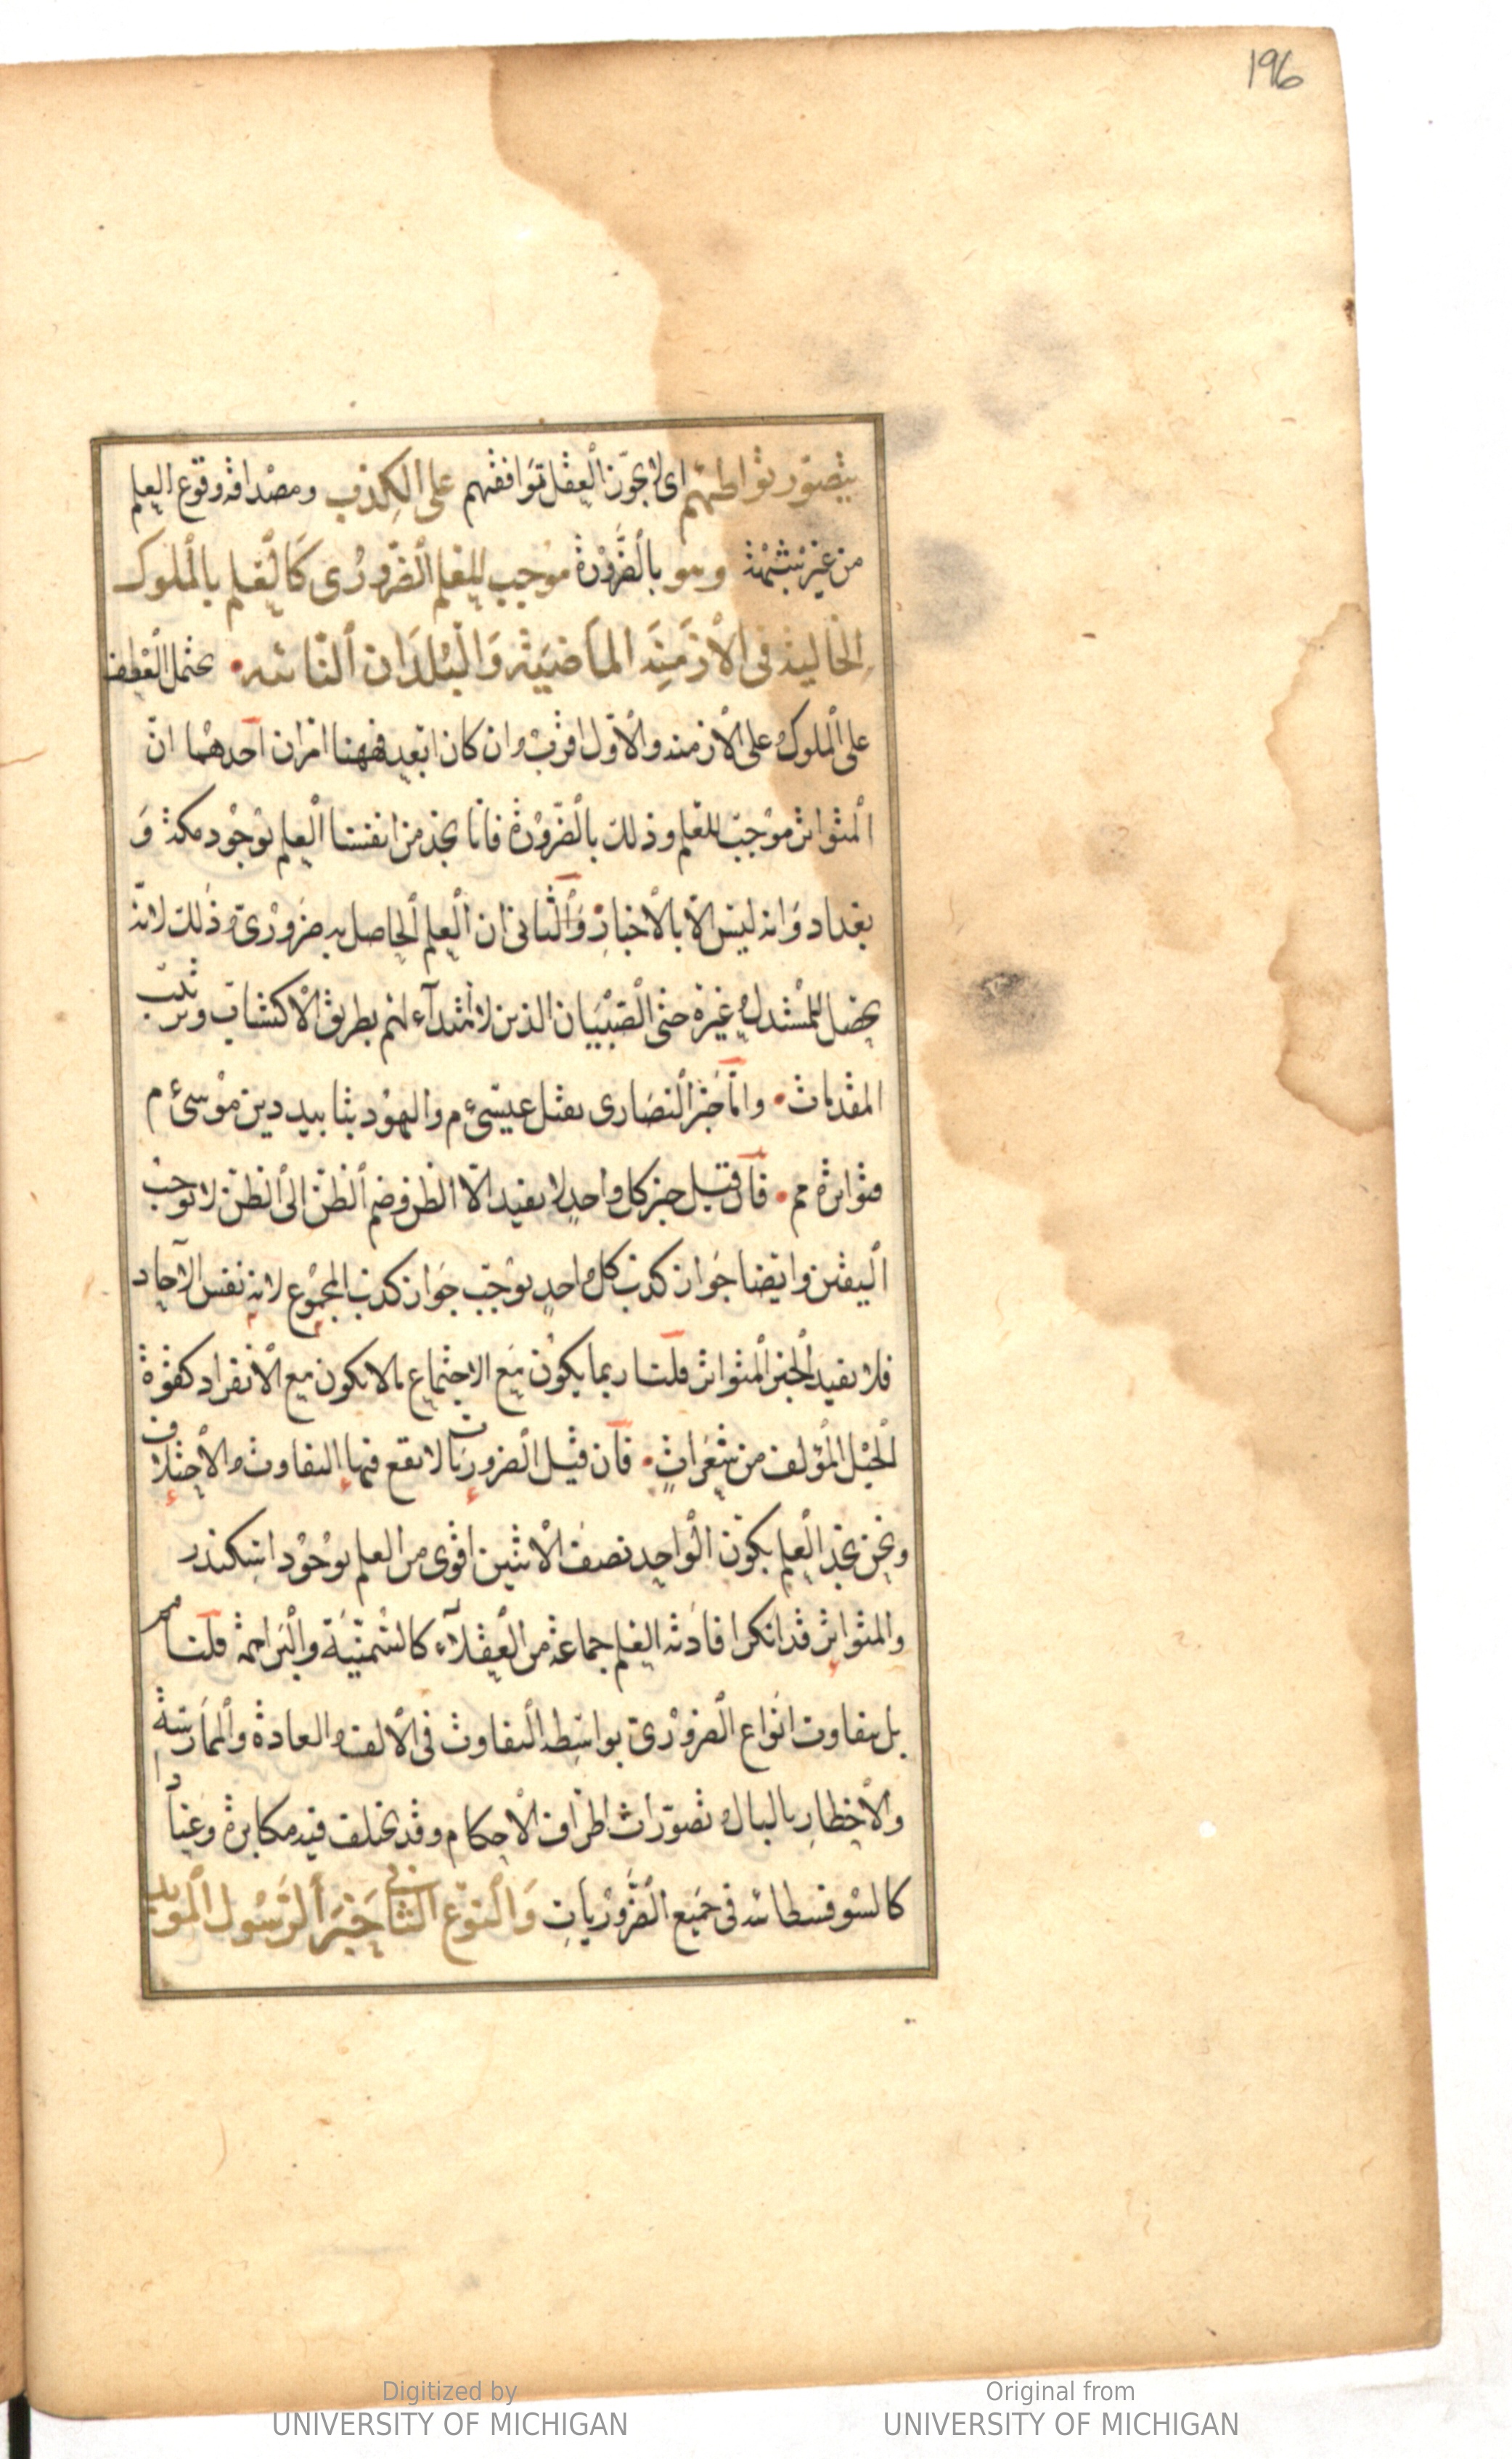 196
يتصور تواطئهم اى لا يجوز العقل توافقهم على الكذب ومصداقه وقوع العلم
من غير شبهة وهو بالضرورة موجب للعلم الضرورى كالعلم بالملوك
الخالية فى الازمنة الماضية والبلدان النائية يحتمل العطف
على الملوك وعلى الازمنة والاول اقرب وان كان ابعد فههنا امران احدهما ان
المتواتر موجب للعلم وذلك بالضرورة فانا نجد من انفسنا العلم بوجود مكة و
بغداد وانه ليس الا بالاخبار والثانى ان العلم الحاصل به ضرورى وذلك لانه
يحصل للمستدل وغيره حتى الصبيان الذين لا اهتداء لهم بطريق الاكتساب وترتيب
المقدمات واما خبر النصارى بقتل عيسى ءم واليهود بتابيد دين موسى ءم
فتواتره مم فان قيل خبر كل واحد لا يفيد الا الظن وضم الظن الى الظن لا يوجب
اليقين وايضا جواز كذب كل واحد يوجب جواز كذب المجموع لانه نفس الآحاد
فلا يفيد الخبر المتواتر قلنا ربما يكون مع الاجتماع ما لا يكون مع الانفراد كقوة
الحبل المؤلف من شعرات فان قيل الضروريات لا يقع فيها التفاوت والاختلاف
ونحن نجد العلم بكون الواحد نصف الاثنين اقوى من العلم بوجود اسكندر
والمتواتر قد انكر افادته العلم جماعة من العقلاء كالسمنية والبراهمة قلنا مم
بل يتفاوت انواع الضرورى بواسطة التفاوت فى الالف والعادة والممارسة
والاخطار بالبال وتصورات اطراف الاحكام وقد يختلف فيه مكابرة وعنادا
كالسوفسطائيه فى جميع الضروريات والنوع الثانى خبر الرسول المؤيد
Digitized by
UNIVERSITY OF MICHIGAN
Original from
UNIVERSITY OF MICHIGAN